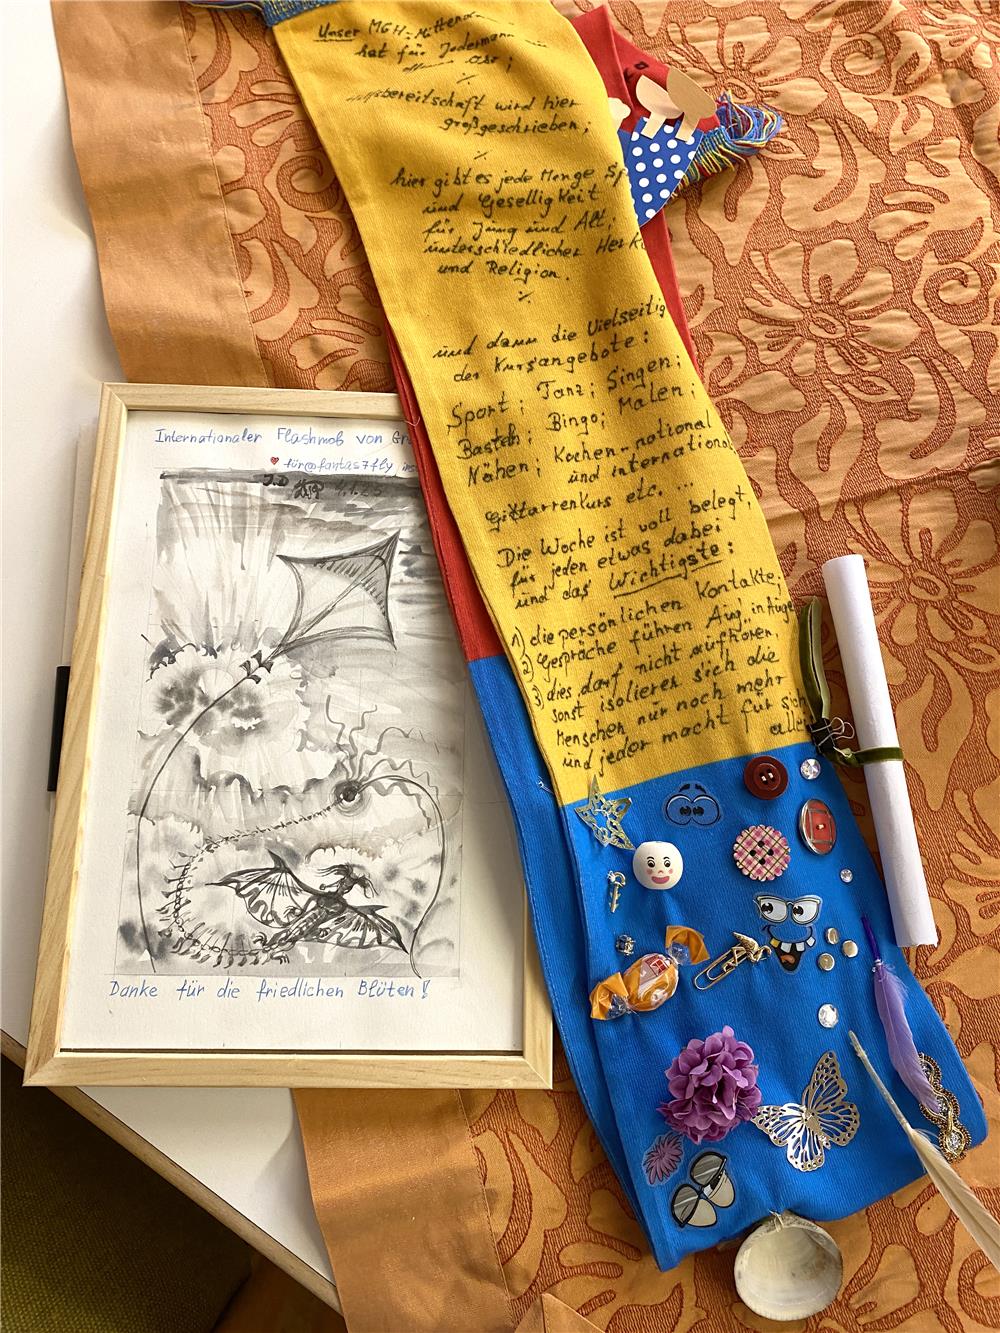 Unser MGH-Mitten
hat für Jedermann
bereitschaft wird hier
großgeschrieben,
hier gibt es jede Menge
und Geselligkeit
für Jung und Alt;
unterschiedlicher Herk
und Religion.
und dann die Vielseitig
der Kursangebote:
Sport; Tanz; Singen;
Basteln; Bingo; Malen;
Nähen; Kochen-national
und international
Gittarrenkurs etc. ...
Die Woche ist voll belegt,
für jeden etwas dabei
und das Wichtigste:
1) die persönlichen Kontakte;
2) Gespräche führen Aug in Auge
3) dies darf nicht aufhören,
sonst isolieren sich die
Menschen nur noch mehr
und jeder macht für sich
Internationaler Flashmob von
für@fantas7fly
Danke für die friedlichen Blüten!